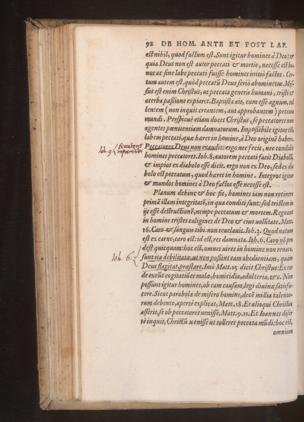 92 DE HOM. ANTE ET POST LAP.
est nihil, quod factum est. Sunt igitur homines à Deo: &
quia Deus non est autor peccati & mortis, necesse est
nos ac sine labe peccati fuisse homines initio factos.
tum autem est, quod peccatū Deus seriò abominetur.
sus est enim Christus, ut peccata generis humani, tristi &
acerba passione expiaret. Baptista ait, cum esse agnum,
lentem (non inquit creantem, aut approbantem) peccata
mundi. Perspicuè etiam docet Christus, se peccatorem non
agentes pœnitentiam damnaturum. Impossibile igitur
labem peccati, quæ haeret in homine, à Deo originē habere.
Peccatores Deus non exaudit: ergo nec fecit, nec condidit
homines peccatores. Ioh. 8. autorem peccati facit Diabolū
& impios ex diabolo esse dicit. ergo non ex Deo, sed ex dia
bolo est peccatum, quod haeret in homine. Integros igitur
& mundos homines à Deo factos esse necesse est.
Planum deinde & hoc sit, homines iam non retinere
primā illam integritatē, in qua conditi sunt: sed tristem in
se esse destructionē, nempe peccatum & mortem.
in homine tristes caligines de Deo & eius voluntate. Matt.
16. Caro & sanguis tibi non revelavit. Ioh. 3. Quod natum
est ex carne, caro est: id est, res damnata. Ioh. 6. Caro nō pro
dest quicquam: hoc est, omnes vires in homine non renato
sunt ita debilitatæ, ut non possint eam obedientiam, quam
Deus flagitat, præstare. Imò Matt. 15. dicit Christus: Ex cor
de exeūt cogitationes malæ, homicidia, adulteria, &c. Non
possunt igitur homines, ob eam causam, legi divinæ satisfa-
cere. Sicut parabola de misero homine, decē millia talento-
rum debente, apertè explicat, Matt. 18. Et aliâs Christus
asserit, se ob peccatores venisse, Matt. 9. 11. Et Ioannes
inquit, Christū venisse ut tolleret peccata mūdi: hoc est,
omnium
Ioh. 9.
Ioh. 6.